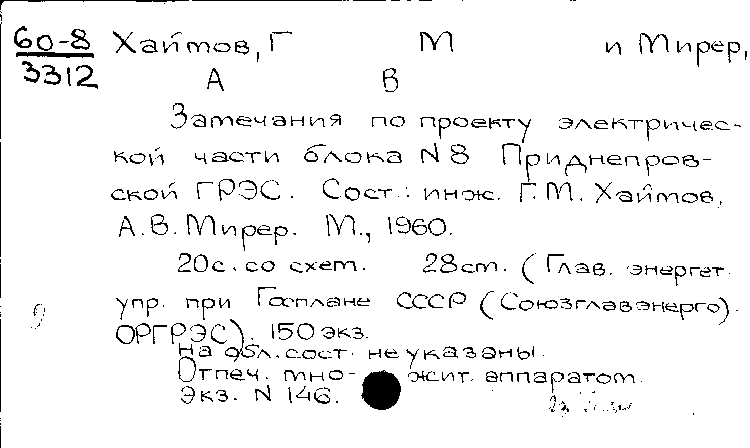 60-8 Хаймов, Г М и Мирер,
3312 А В
Замечания по проекту электричес-
кой части блока N 8 Приднепров-
ской ГРЭС. Сост.: инж. Г.М. Хаймов,
А.В. Мирер. М., 1960.
20с. со схем. 28см. (Глав. энергет.
упр. при Госплане СССР (Союзглавэнерго).
ОРГРЭС). 150 экз.
На обл. сост. не указаны.
Отпеч. мно- жит. аппаратом.
Экз. N 146.